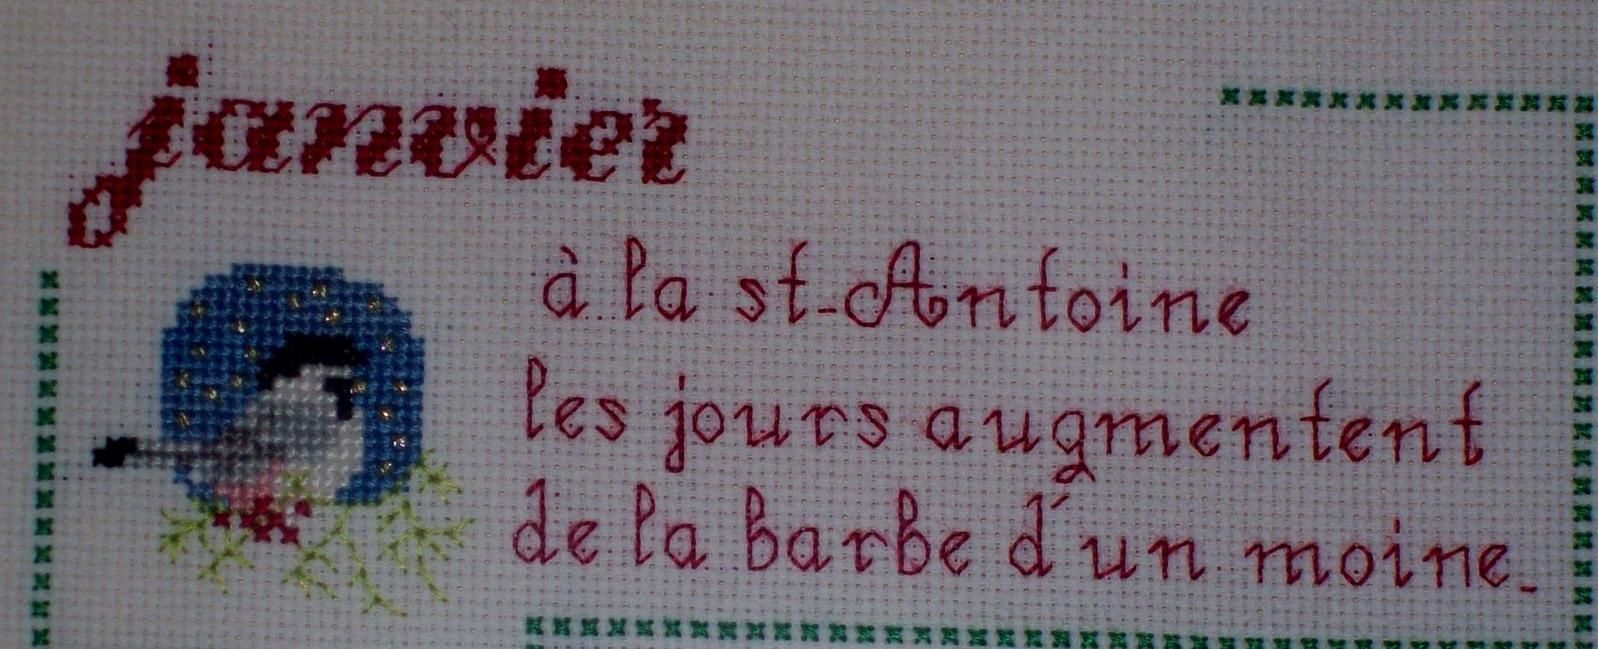 janvier
à la st-Antoine
les jours augmentent
de la barbe d'un moine.